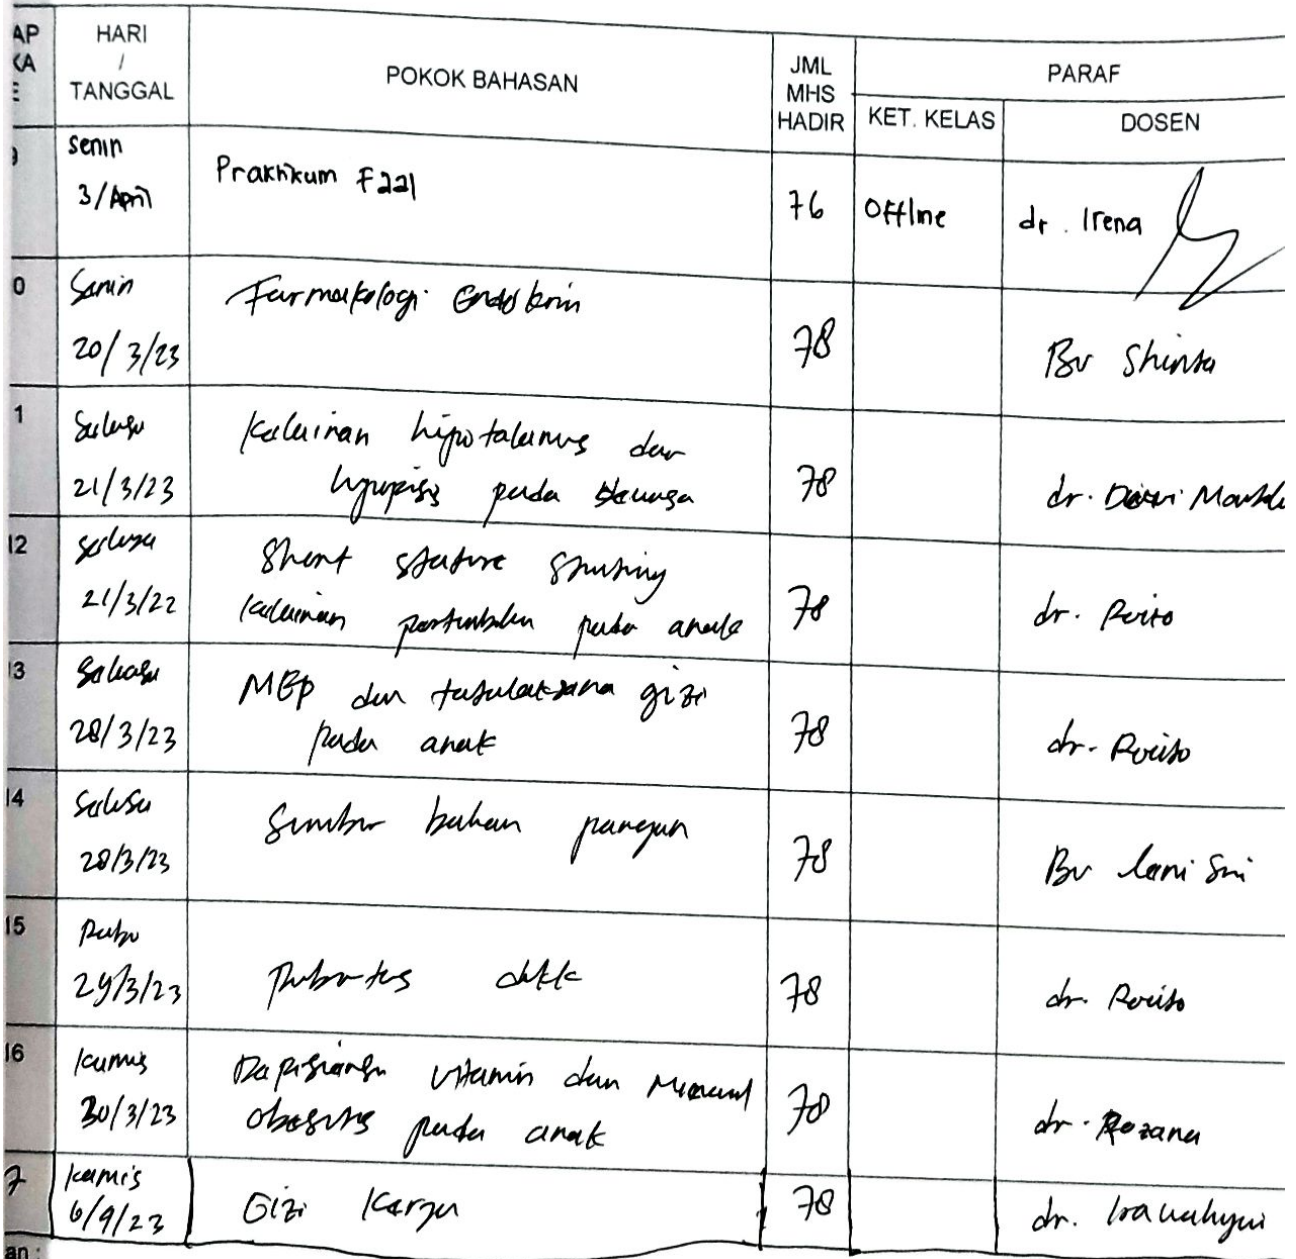 AP
KA
E
HARI
/
TANGGAL
POKOK BAHASAN
JML
MHS
HADIR
PARAF
KET. KELAS
DOSEN
9
Senin
3/April
Praktikum Faal
76
Offline
dr. Irena
0
Senin
20/3/23
Farmakologi Endokrin
78
Bu Shinta
1
Selasa
21/3/23
Kelainan hipotalamus dan
hipofisis pada dewasa
78
dr. Dewi
12
Selasa
21/3/22
Short stature stunting
kelainan pertumbuhan pada anak
78
dr.
13
Selasa
28/3/23
MEP dan tatalaksana gizi
pada anak
78
dr.
14
Selasa
28/3/23
Sumber bahan pangan
78
Bu
15
Rabu
29/3/23
Pubertas dikk
78
dr.
16
Kamis
30/3/23
vitamin dan Mineral
obesitas pada anak
78
dr. Rozana
7
Kamis
6/9/23
Gizi Kerja
78
dr.
an :